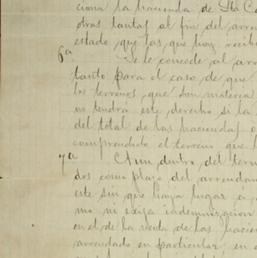 ciona la hacienda de Sta Ca
otras tantas al fin del arren
estado que las que hoy recibe
6a
Se le concede al arr
tanto para el caso de que
los terrenos que son materia
no tendrá este derecho si la
del total de las haciendas o
comprendido el terreno que
7a
Aun dentro del term
dos como plazo del arrendam
este sin que haya lugar a
mo ni exija indemnizacion
en el de la venta de las hacien
arrendado en particular, en